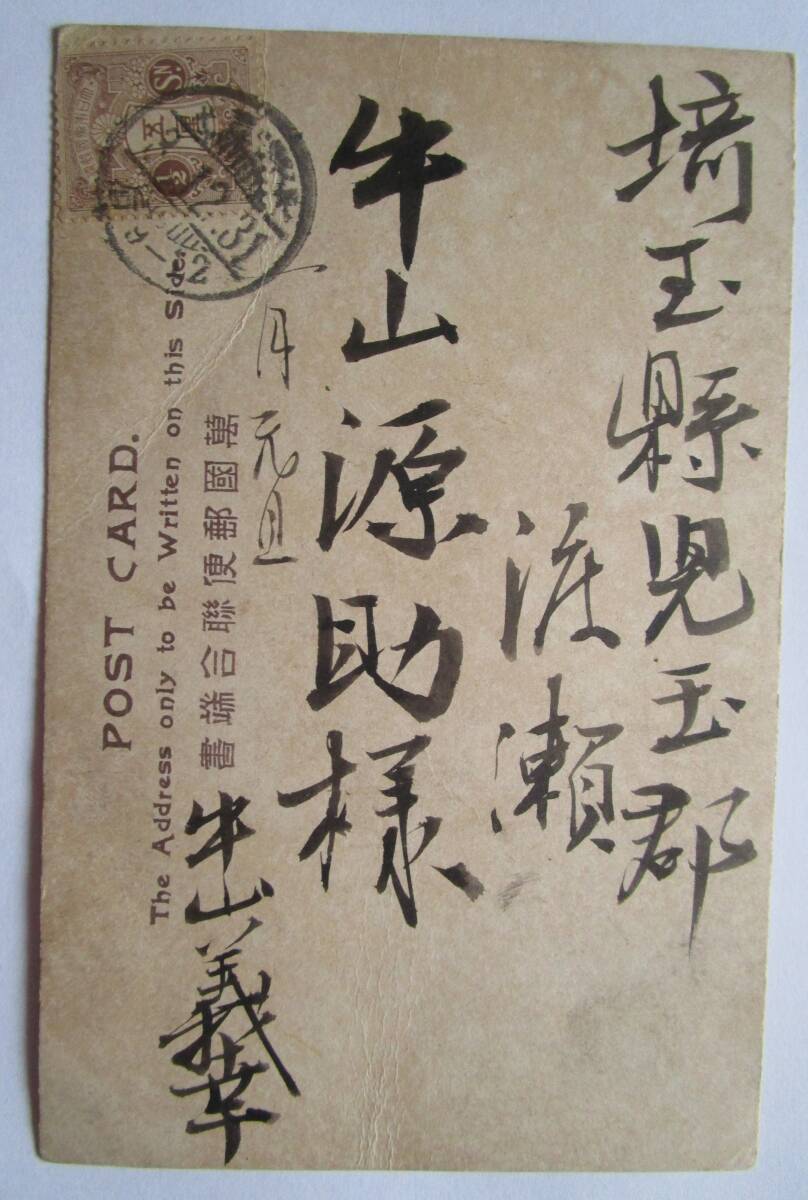 埼玉縣児玉郡
渡瀬
牛山源助様
一月元旦
牛山義幸
萬國郵便聯合端書
POST CARD.
The Address only to be Written on this Side.
五厘
½ SN